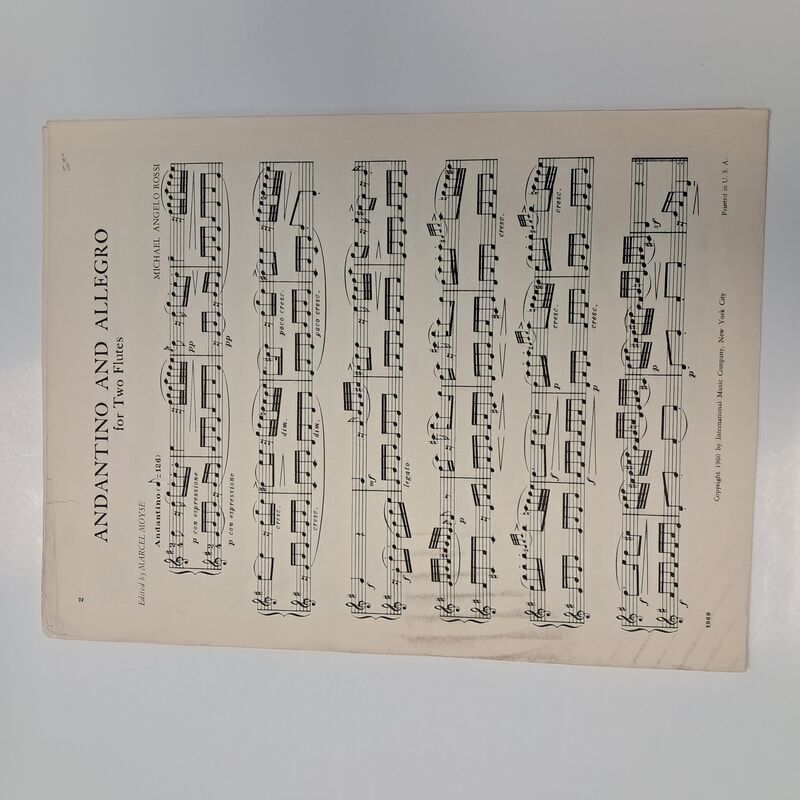 2
ANDANTINO AND ALLEGRO
for Two Flutes
Edited by MARCEL MOYSE
MICHAEL ANGELO ROSSI
Andantino (♪=126)
p con espressione
pp
p con espressione
pp
cresc.
dim.
poco cresc.
cresc.
dim.
poco cresc.
f
mf
f
legato
p
cresc.
cresc.
f
p
cresc.
cresc.
f
p
cresc.
f
p
sf
f
p
1969
Copyright 1960 by International Music Company, New York City
Printed in U. S. A.